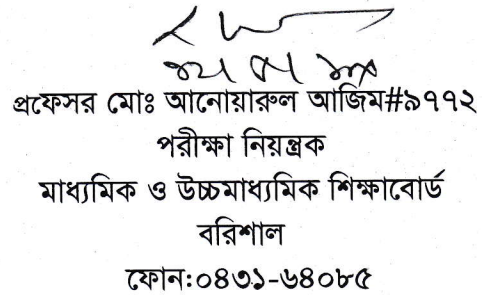 প্রফেসর মোঃ আনোয়ারুল আজিম#৯৭৭২
পরীক্ষা নিয়ন্ত্রক
মাধ্যমিক ও উচ্চমাধ্যমিক শিক্ষাবোর্ড
বরিশাল
ফোন:০৪৩১-৬৪০৮৫